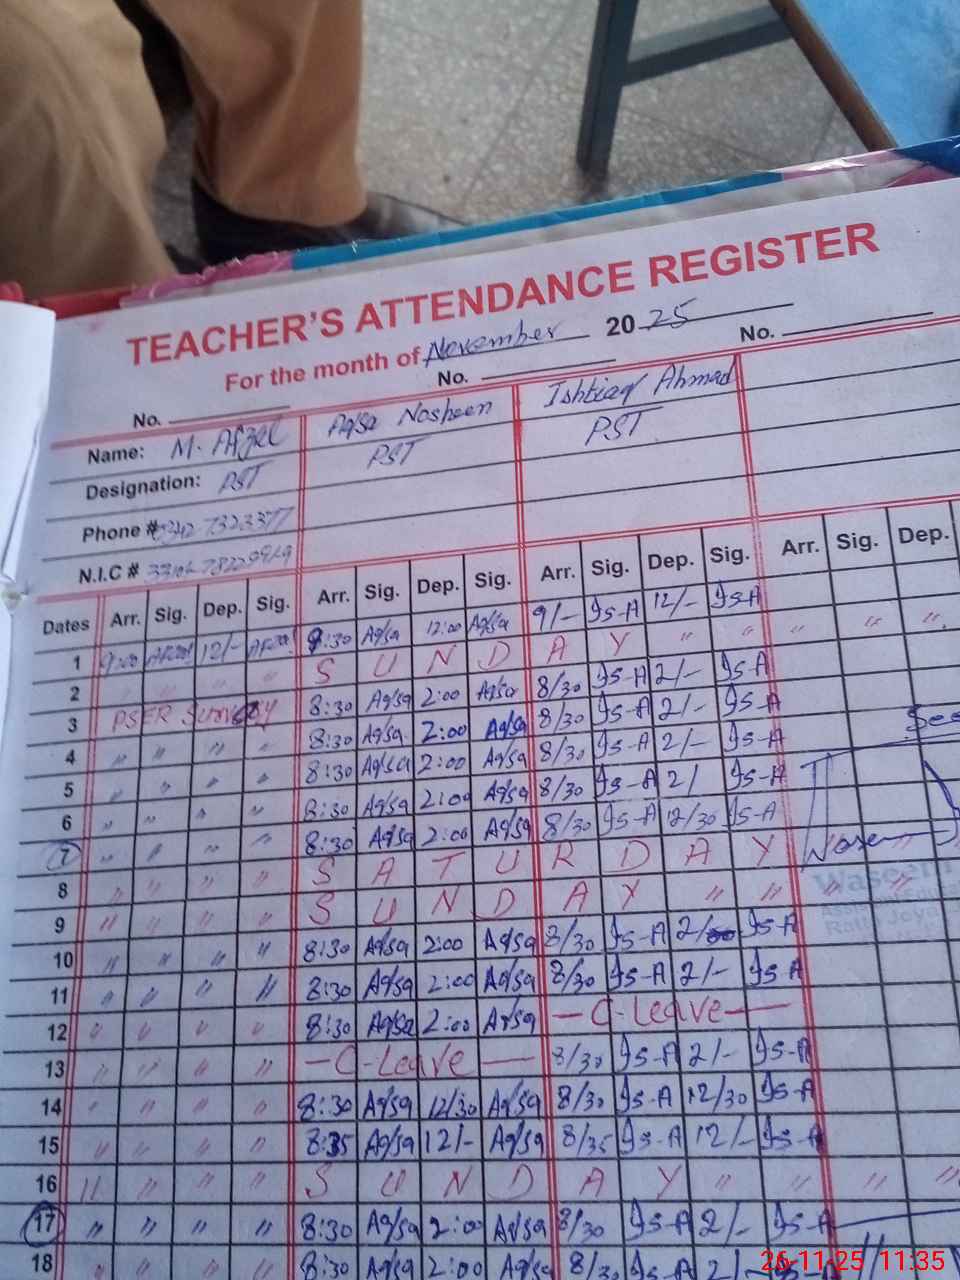 TEACHER'S ATTENDANCE REGISTER
For the month of November 2025
No. No. No.
Name: M. Afzal Aqsa Nosheen Ishtiaq Ahmad
Designation: PST PST PST
Phone #
N.I.C #
Dates Arr. Sig. Dep. Sig. Arr. Sig. Dep. Sig. Arr. Sig. Dep. Sig. Arr. Sig. Dep.
1 9:00 Afzal 12/- Afzal 8:30 Aqsa 12:00 Aqsa 9/- Is-A 12/- Is-A
2 " " " " S U N D A Y " " " " "
3 PSER Survey 8:30 Aqsa 2:00 Aqsa 8/30 Is-A 2/- Is-A
4 " " " " 8:30 Aqsa 2:00 Aqsa 8/30 Is-A 2/- Is-A
5 " " " " 8:30 Aqsa 2:00 Aqsa 8/30 Is-A 2/- Is-A
6 " " " " 8:30 Aqsa 2:00 Aqsa 8/30 Is-A 2/ Is-A
7 " " " " 8:30 Aqsa 2:00 Aqsa 8/30 Is-A 12/30 Is-A
8 " " " " S A T U R D A Y
9 " " " " S U N D A Y " " " "
10 " " " " 8:30 Aqsa 2:00 Aqsa 8/30 Is-A 2/ Is-A
11 " " " " 8:30 Aqsa 2:00 Aqsa 8/30 Is-A 2/- Is-A
12 " " " " 8:30 Aqsa 2:00 Aqsa — C-Leave —
13 " " " " — C-Leave — 8/30 Is-A 2/- Is-A
14 " " " " 8:30 Aqsa 12/30 Aqsa 8/30 Is-A 12/30 Is-A
15 " " " " 8:35 Aqsa 12/- Aqsa 8/35 Is-A 12/- Is-A
16 " " " " S U N D A Y " " " " "
17 " " " " 8:30 Aqsa 2:00 Aqsa 8/30 Is-A 2/- Is-A
18 " " " " 8:30 Aqsa 2:00 Aqsa 8/30 Is-A 2/- Is-A
Waseem
26-11-25 11:35